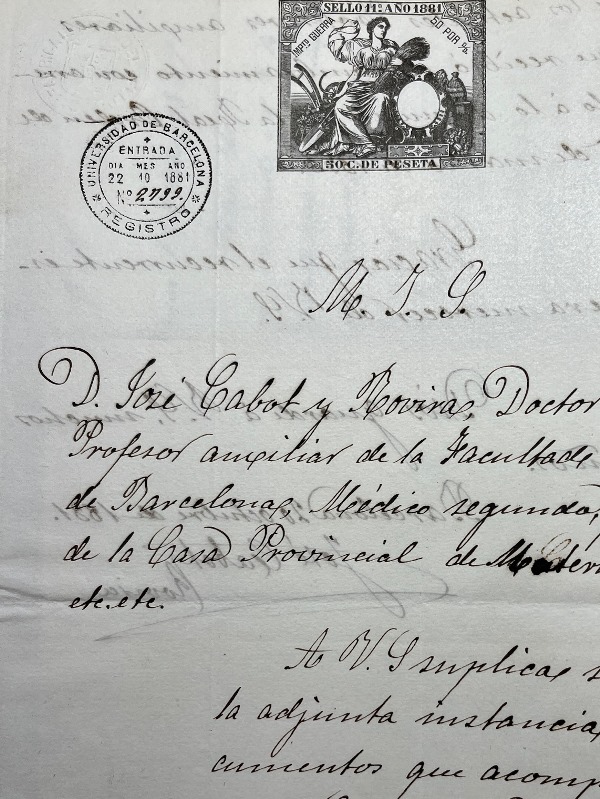 SELLO 11º AÑO 1881
MPTO GUERRA
50 POR %
50 C. DE PESETA
UNIVERSIDAD DE BARCELONA
ENTRADA
DIA MES AÑO
22 10 1881
Nº 2799.
REGISTRO
M. I. S.
D. José Cabot y Rovira, Doctor
Profesor auxiliar de la Facultad de
de Barcelona, Médico segundo,
de la Casa Provincial de Matern
etc. etc.
A V. S suplica, s
la adjunta instancia,
cumentos que acomp